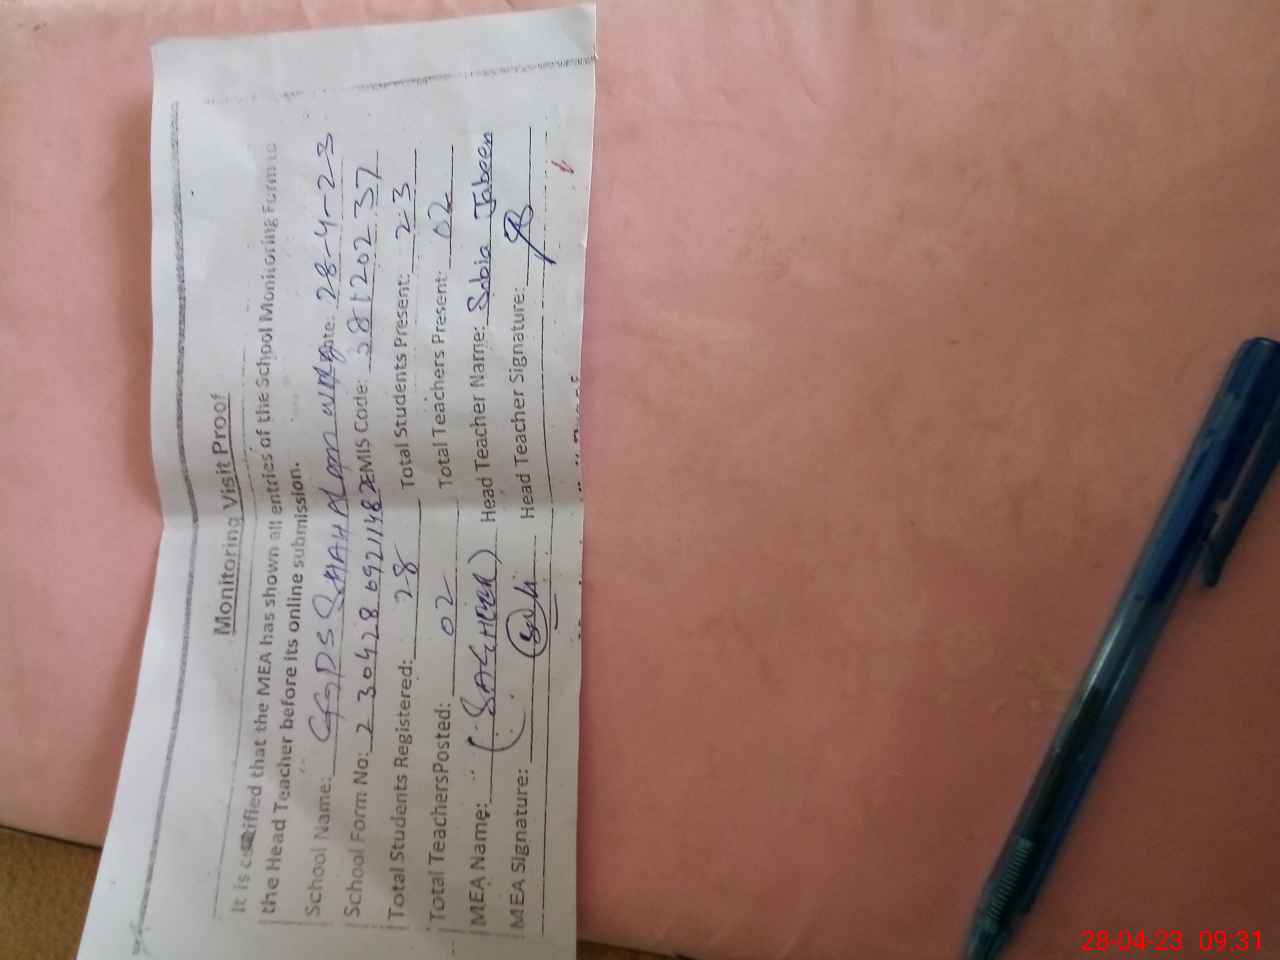 Monitoring Visit Proof
It is certified that the MEA has shown all entries of the School Monitoring Form to
the Head Teacher before its online submission.
School Name: GGPS Date: 28-4-23
School Form No: 230428 EMIS Code: 28120237
Total Students Registered: 28 Total Students Present: 23
Total TeachersPosted: 02 Total Teachers Present: 02
MEA Name: Head Teacher Name: Sobia Jabeen
MEA Signature: Head Teacher Signature:
28-04-23 09:31